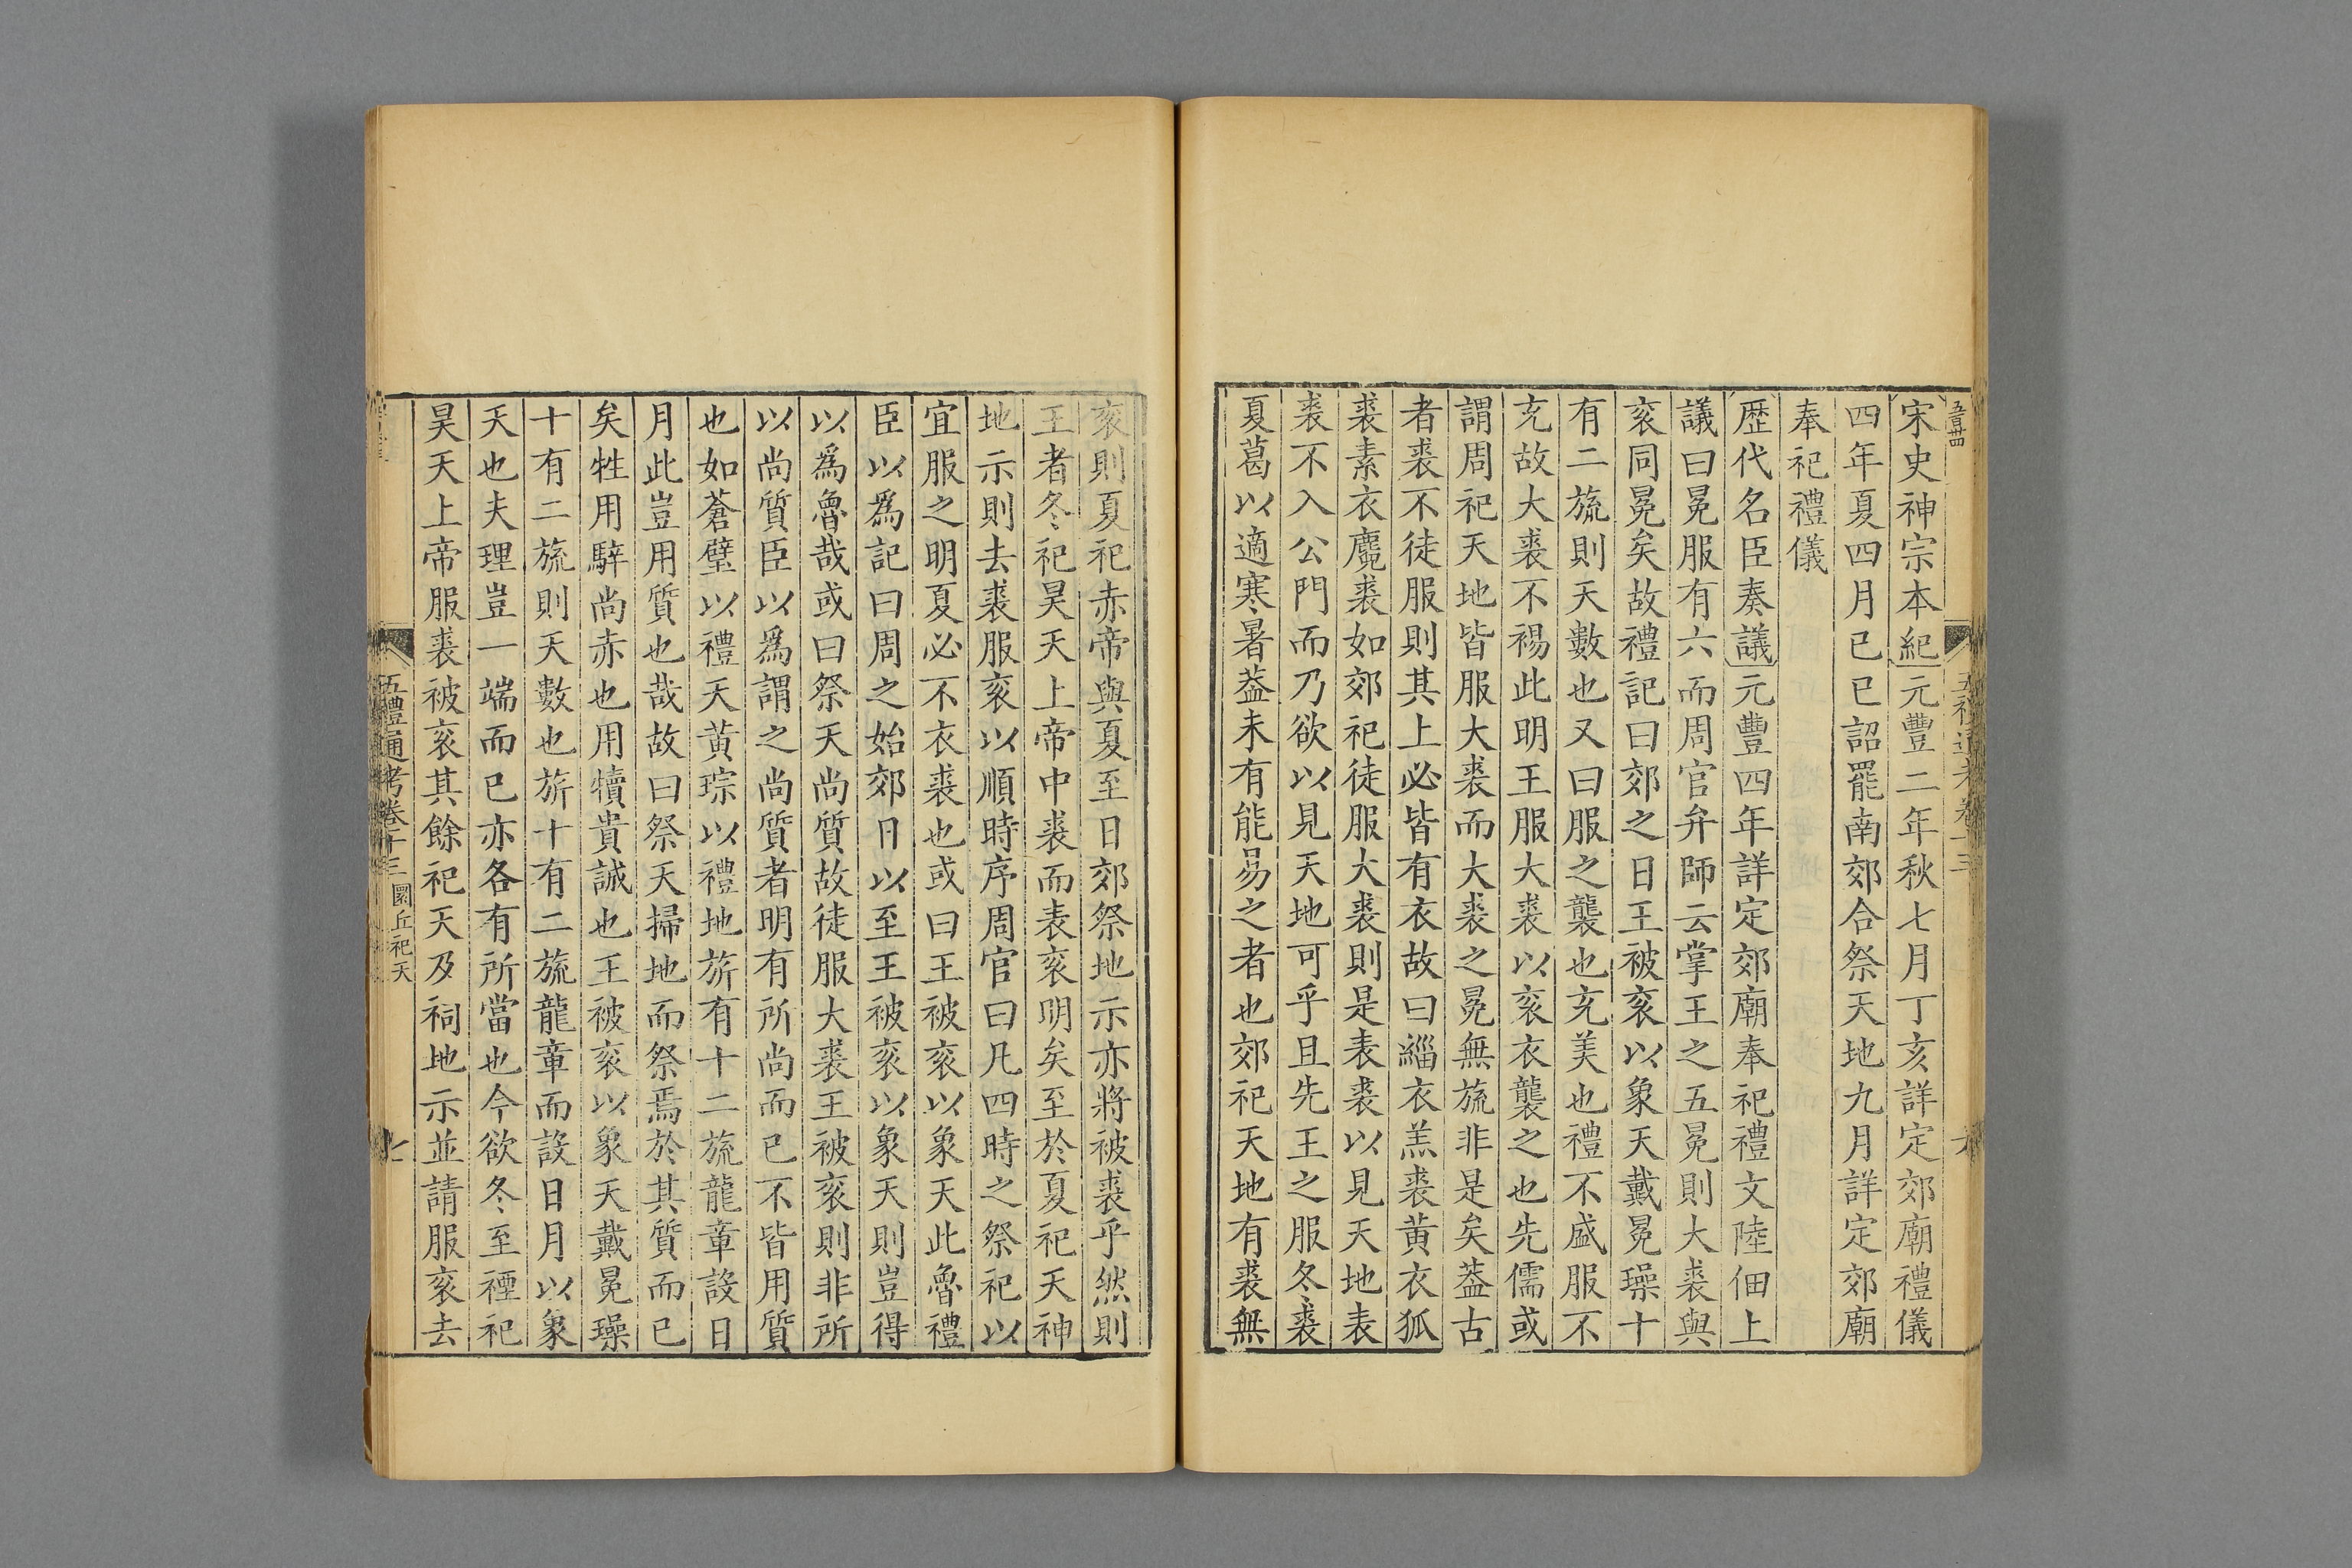 宋史神宗本紀元豐二年秋七月丁亥詳定郊廟禮儀
四年夏四月己巳詔罷南郊合祭天地九月詳定郊廟
奉祀禮儀
歷代名臣奏議元豐四年詳定郊廟奉祀禮文陸佃上
議曰冕服有六而周官弁師云掌王之五冕則大裘與
衮同冕矣故禮記曰郊之日王被衮以象天戴冕璪十
有二旒則天數也又曰服之襲也充美也禮不盛服不
充故大裘不裼此明王服大裘以衮衣襲之也先儒或
謂周祀天地皆服大裘而大裘之冕無旒非是矣葢古
者裘不徒服則其上必皆有衣故曰緇衣羔裘黃衣狐
裘素衣麑裘如郊祀徒服大裘則是表裘以見天地表
裘不入公門而乃欲以見天地可乎且先王之服冬裘
夏葛以適寒暑葢未有能易之者也郊祀天地有裘無
衮則夏祀赤帝與夏至日郊祭地示亦將被裘乎然則
王者冬祀昊天上帝中裘而表衮明矣至於夏祀天神
地示則去裘服衮以順時序周官曰凡四時之祭祀以
宜服之明夏必不衣裘也或曰王被衮以象天此魯禮
臣以爲記曰周之始郊日以至王被衮以象天則豈得
以爲魯哉或曰祭天尚質故徒服大裘王被衮則非所
以尚質臣以爲謂之尚質者明有所尚而已不皆用質
也如蒼璧以禮天黃琮以禮地旂有十二旒龍章設日
月此豈用質也哉故曰祭天掃地而祭焉於其質而已
矣牲用騂尚赤也用犢貴誠也王被衮以象天戴冕璪
十有二旒則天數也旂十有二旒龍章而設日月以象
天也夫理豈一端而已亦各有所當也今欲冬至禋祀
昊天上帝服裘被衮其餘祀天及祠地示並請服衮去
五禮通考卷十三 圜丘祀天 七